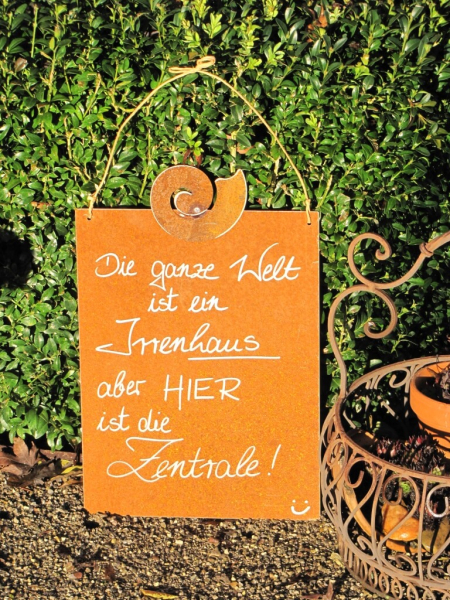 Die ganze Welt
ist ein
Irrenhaus
aber HIER
ist die
Zentrale!